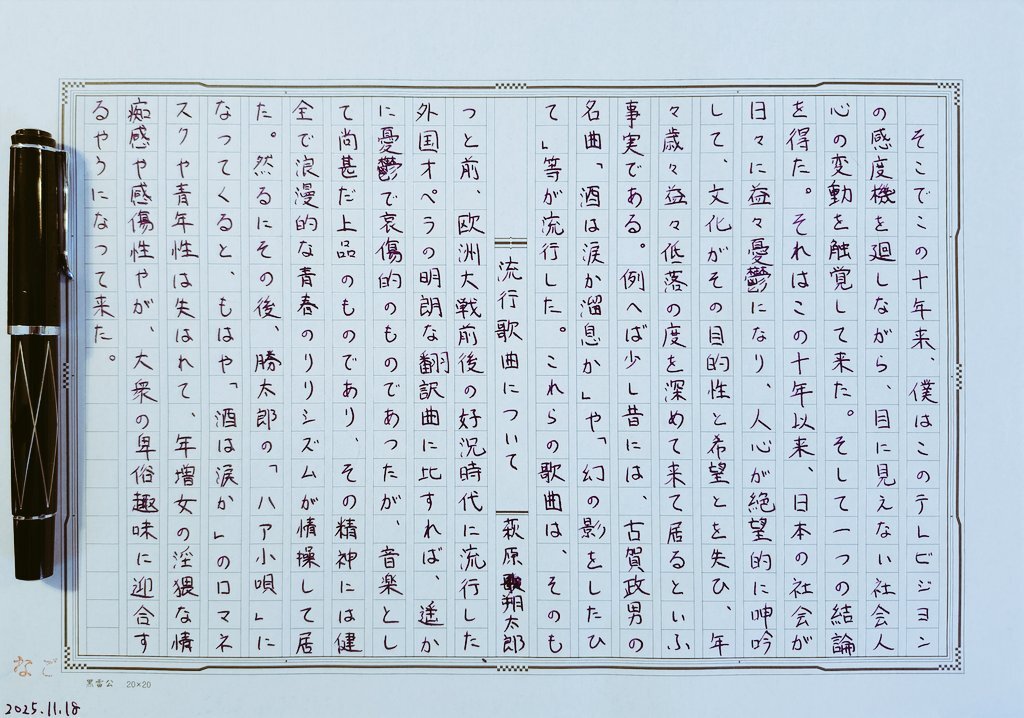 そこでこの十年来、僕はこのテレビジョン
の感度機を廻しながら、目に見えない社会人
心の変動を触覚して来た。そして一つの結論
を得た。それはこの十年以来、日本の社会が
日々に益々憂鬱になり、人心が絶望的に呻吟
して、文化がその目的性と希望とを失ひ、年
々歳々益々低落の度を深めて来て居るといふ
事実である。例へば少し昔には、古賀政男の
名曲「酒は涙か溜息か」や「幻の影をしたひ
て」等が流行した。これらの歌曲は、そのも
流行歌曲について
萩原朔太郎
つと前、欧洲大戦前後の好況時代に流行した
外国オペラの明朗な翻訳曲に比すれば、遥か
に憂鬱で哀傷的のものであつたが、音楽とし
て尚甚だ上品のものであり、その精神には健
全で浪漫的な青春のリリシズムが情操して居
た。然るにその後、勝太郎の「ハア小唄」に
なつてくると、もはや「酒は涙か」のロマネ
スクや青年性は失はれて、年増女の淫猥な情
痴感や感傷性やが、大衆の卑俗趣味に迎合す
るやうになつて来た。
なご
黒雷公 20×20
2025.11.18